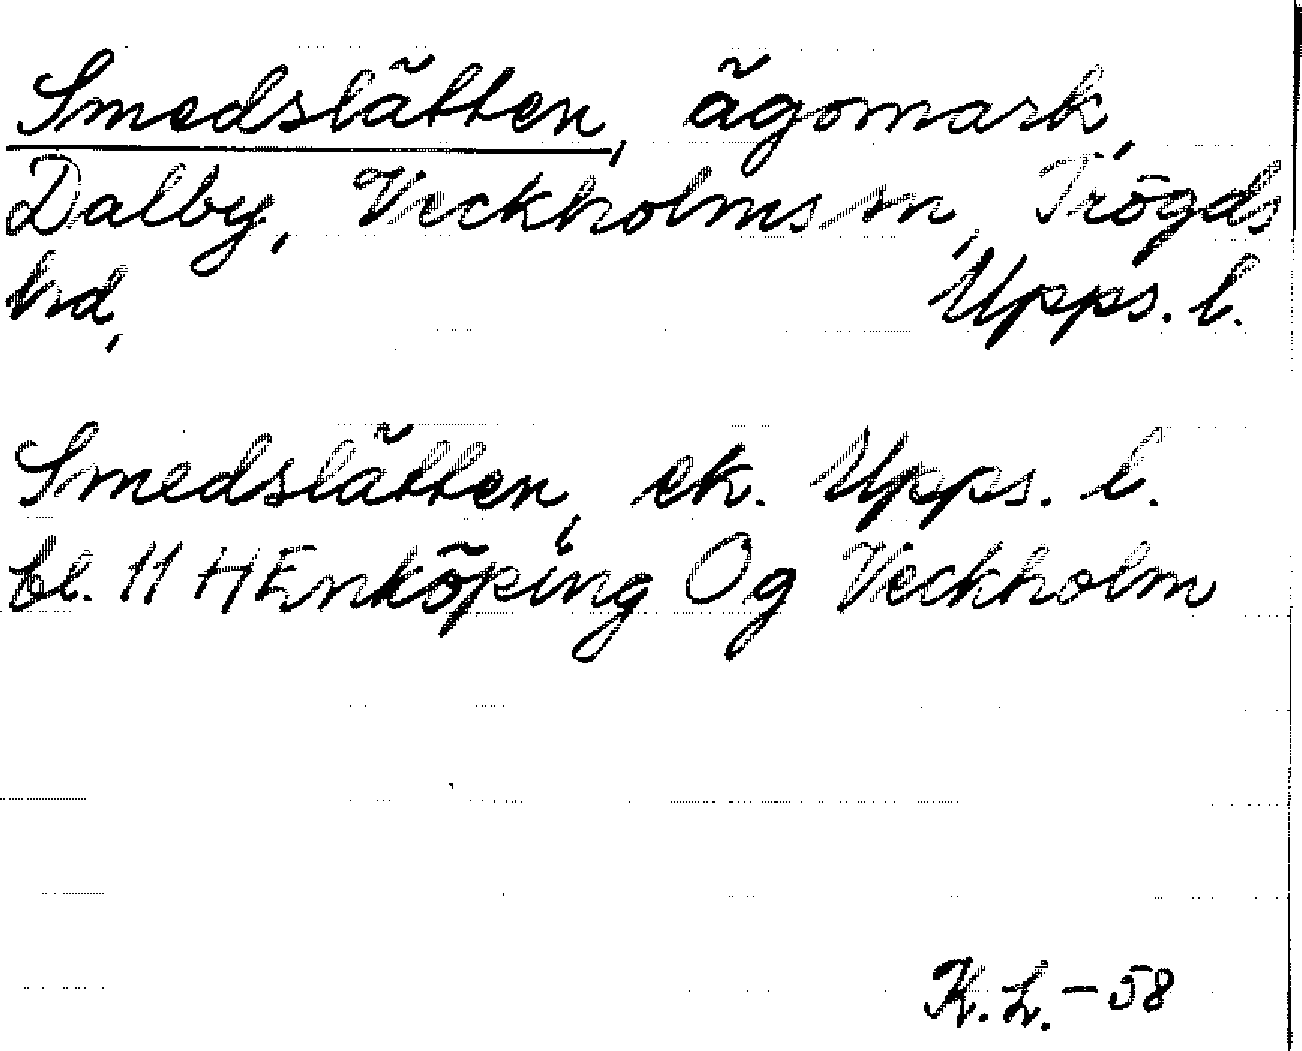 Smedslätten, ägomark,
Dalby, Veckholms sn, Trögds
hd, Upps. l.
Smedslätten, ek. Upps. l.
bl. 11 H Enköping Og Veckholm
K. L. - 58